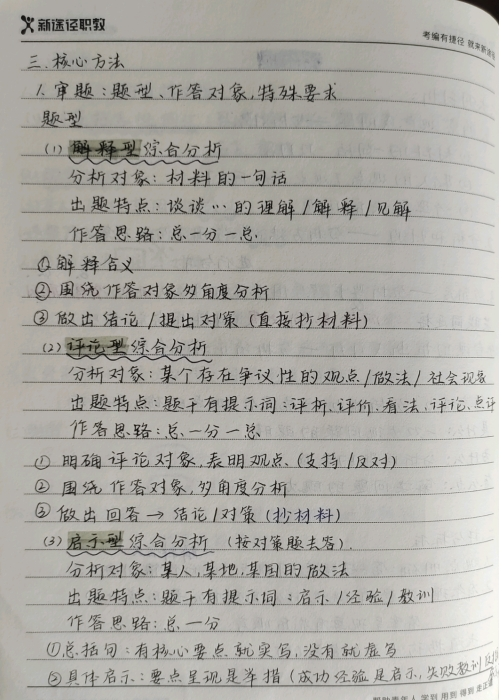 新途径职教
考编有捷径 就来新途径
三.核心方法
1.审题:题型、作答对象,特殊要求
题型
(1)解释型综合分析
分析对象:材料的一句话
出题特点:谈谈…的理解/解释/见解
作答思路:总一分一总
①解释含义
②围绕作答对象多角度分析
③做出结论/提出对策(直接抄材料)
(2)评论型综合分析
分析对象:某个存在争议性的观点/做法/社会现象
出题特点:题干有提示词:评析、评价、看法、评论、点评
作答思路:总一分一总
①明确评论对象,表明观点(支持/反对)
②围绕作答对象,多角度分析
③做出回答→结论/对策(抄材料)
(3)启示型综合分析(按对策题去答).
分析对象:某人,某地,某国的做法
出题特点:题干有提示词:启示/经验/教训
作答思路:总一分
①总括句:有核心要点就实写,没有就虚写
②具体启示:要点呈现是单指(成功经验是启示,失败教训
学到 用到 得到